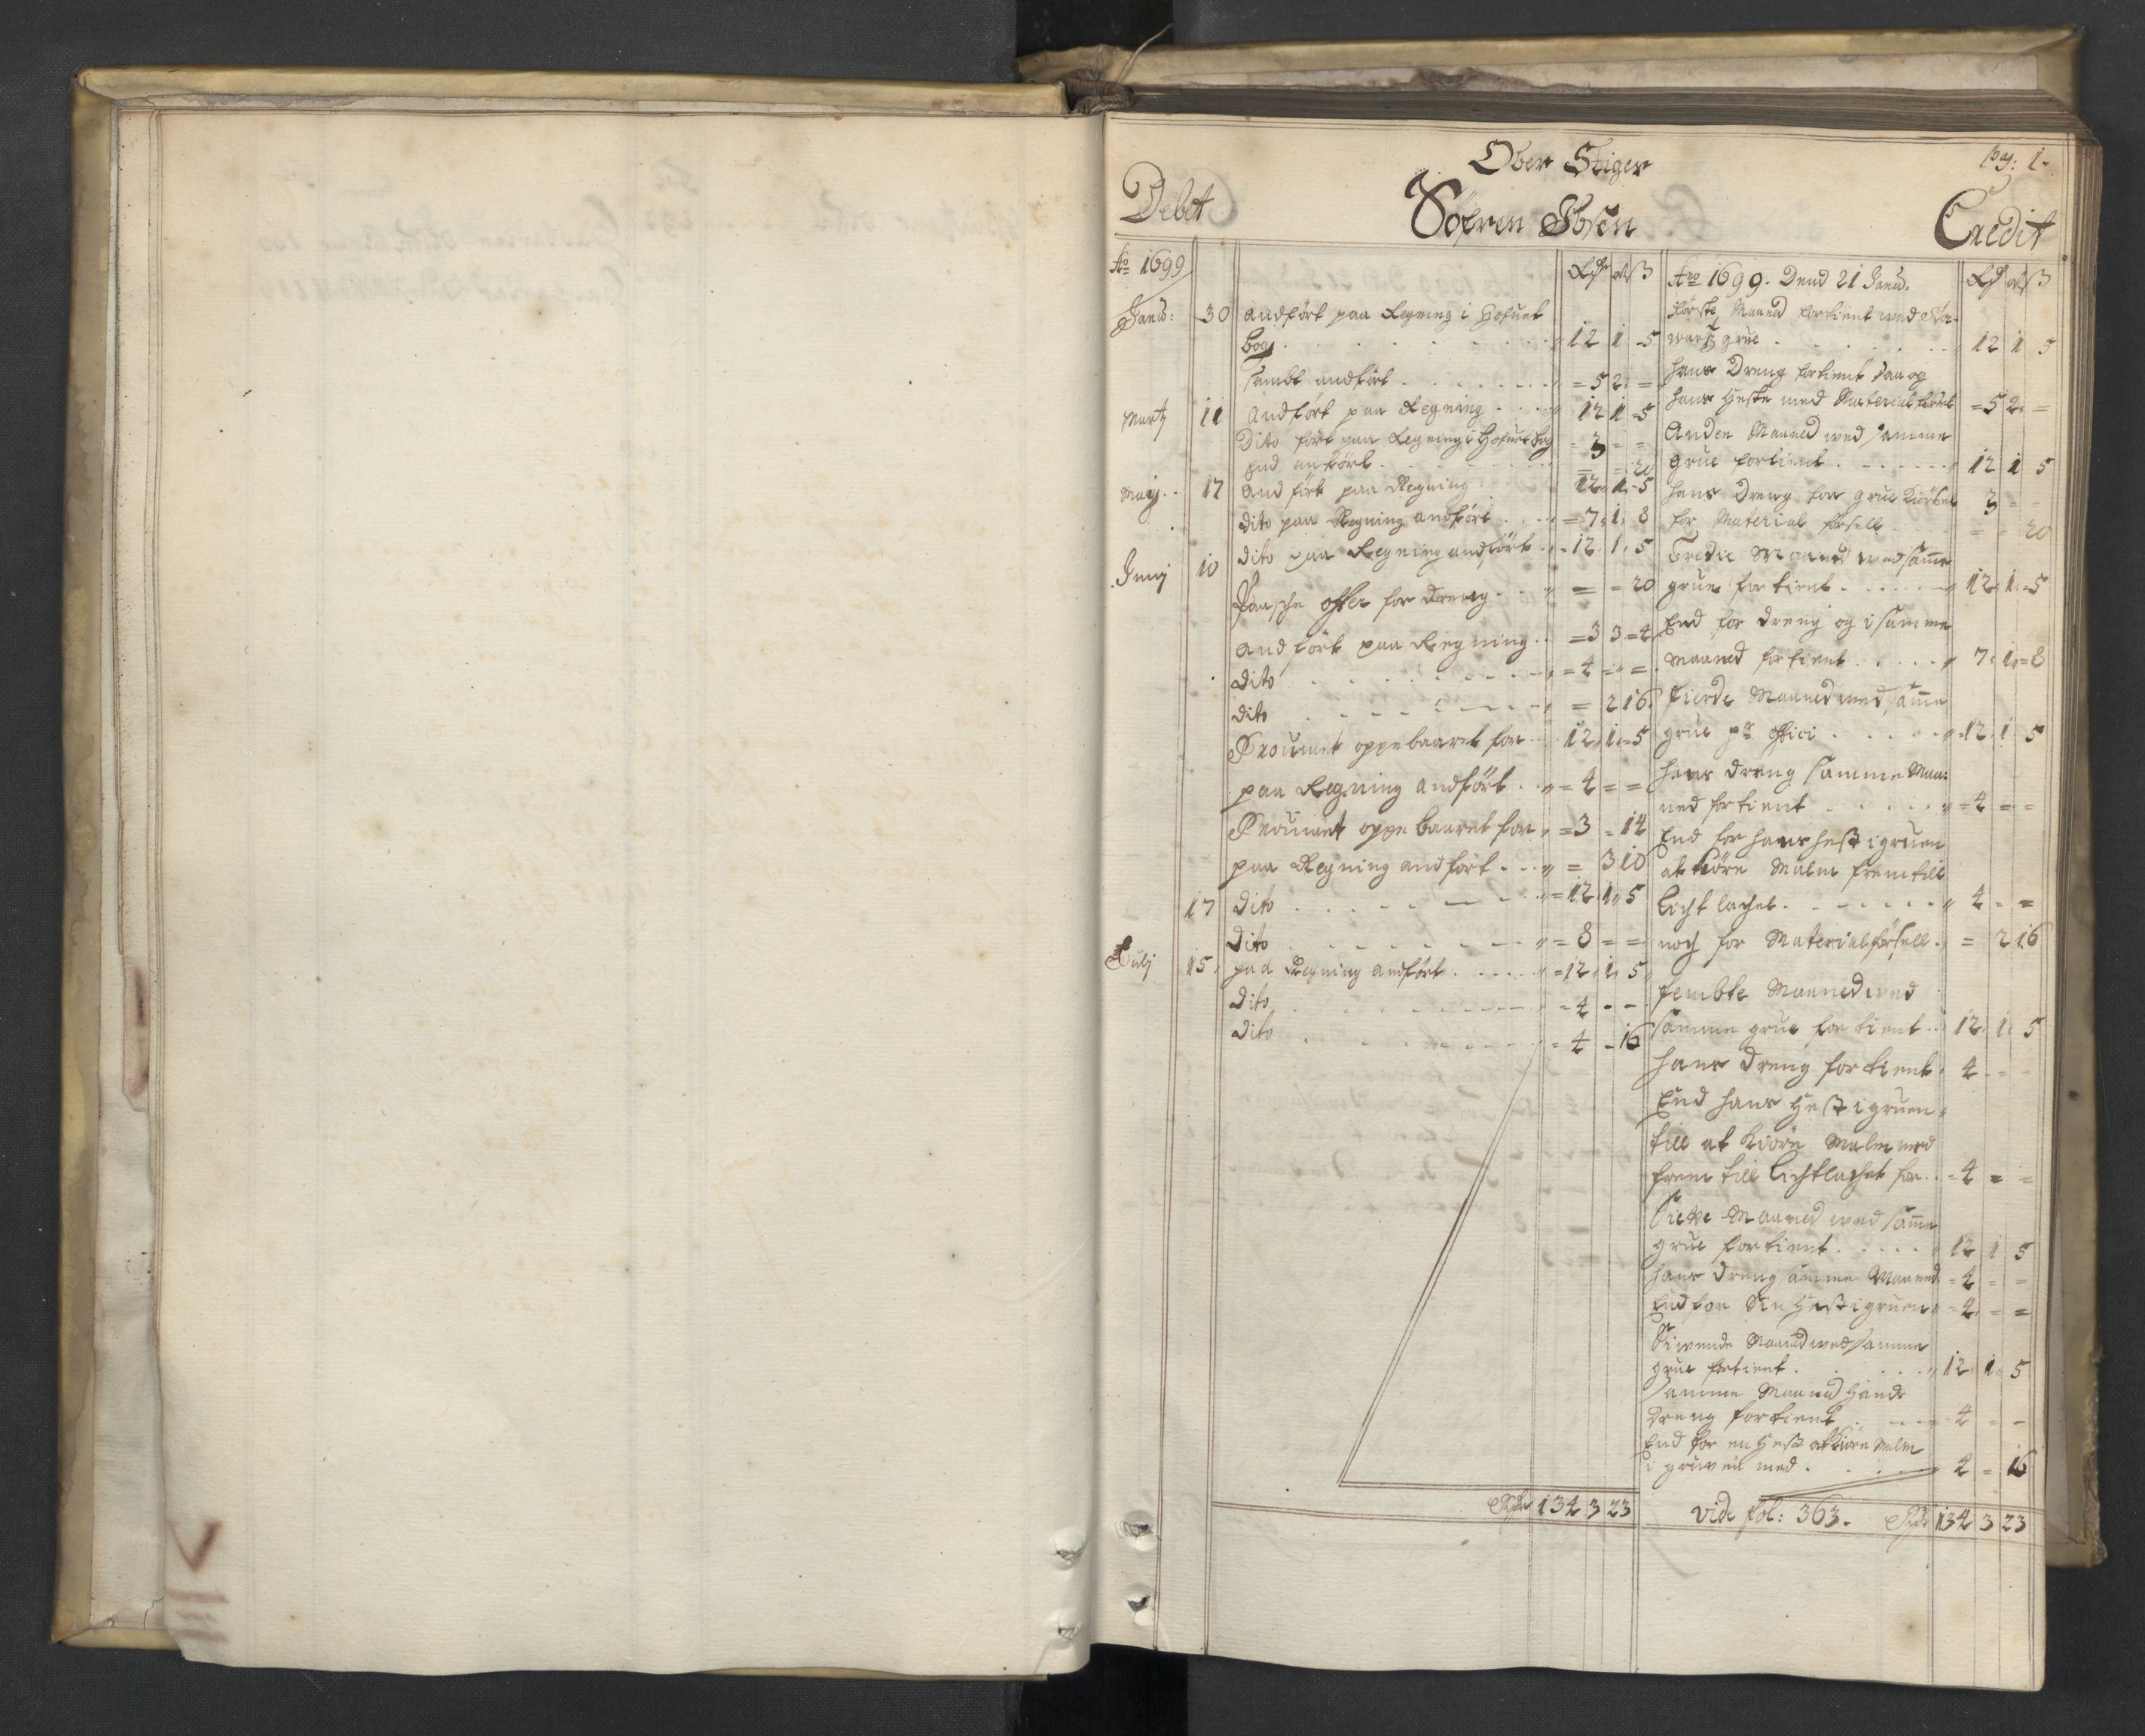 pag: 1.
Ober Stiger
Debet Söfren Ibsen Credit
Ao 1699
Rdr ort ß
Janu: 30 andført paa Regning i Hofuet
bog 12 1 5
sambt andført = 5 2 =
Marty 11 andført paa Regning 12 1 5
Dito ført paa Regning i Hofuet bog 3 = =
End anført = = 20
Maij 17 andført paa Regning 12 1 5
dito paa Regning andført = 7 1 8
Junij 10 dito paa Regning andført 12 1 5
Paasche offer for dreng = = 20
andført paa Regning = 3 3 = 4
dito = 4 = =
dito = 2 16
Prouiant oppebaaret for 12 1 5
paa Regning andført = 4 = =
Prouiant oppebaaret for = 3 = 14
paa Regning andført = 3 10
17 dito = 12 1 5
dito = 8 = =
Julij 15 paa Regning andført = 12 1 5
dito = 4 - -
dito = 4 - 16
Rdr 134 3 23
Ano 1699. Dend 21 Janu. Rdr ort ß
første Maaned fortient wed
grue 12 1 5
hans Dreng fortient saa og
hans Heste med Material = 5 2 =
Anden Maaned wed samme
grue fortient 12 1 5
hans Dreng for grue 3 = =
for Material førsell = = 20
Tredie Maaned wed same
grue fortient 12 1 5
End for dreng og i samme
Maaned fortient 7 1 = 8
fierde Maaned wed same
grue pr offici 12 1 5
hans dreng samme Maa:
ned fortient = 4 = =
End for hans hest i gruen
at kiøre Malm frem till
Lichtlachet 4 - =
noch for Materialførsell = 2 16
fembte Maaned wed
samme grue fortient 12 1 5
hans dreng fortient 4 - -
End hans Hest i gruen
till at kiøre Malm med
frem till Lichtlachet for = 4 = =
Siette Maaned wed same
grue fortient 12 1 5
hans dreng samme Maaned = 4 = =
End for sin Hest i gruen = 4 = =
Siwende Maaned wed samme
grue fortient 12 1 5
samme Maaned hands
dreng fortient 4 = -
End for en Hest at kiøre Malm
i gruwen med 4 = 16
vide fol: 363. Rdr 134 3 23